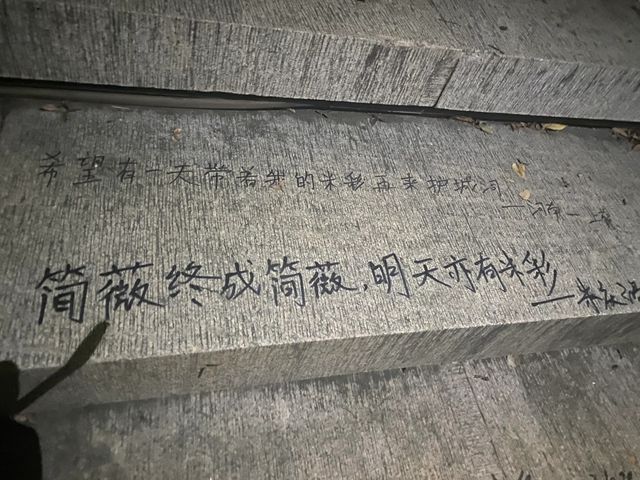 希望有一天带着我的米彩再来护城河
——河南一
简薇终成简薇，明天亦有米彩